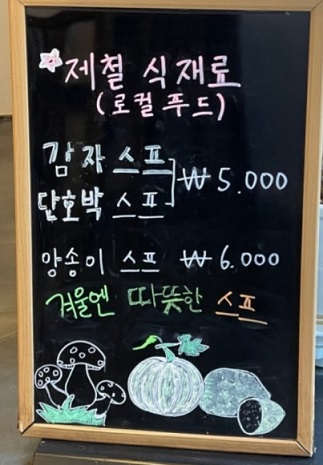 제철 식재료
(로컬푸드)
감자 스프
단호박 스프
₩ 5.000
양송이 스프 ₩ 6.000
겨울엔 따뜻한 스프